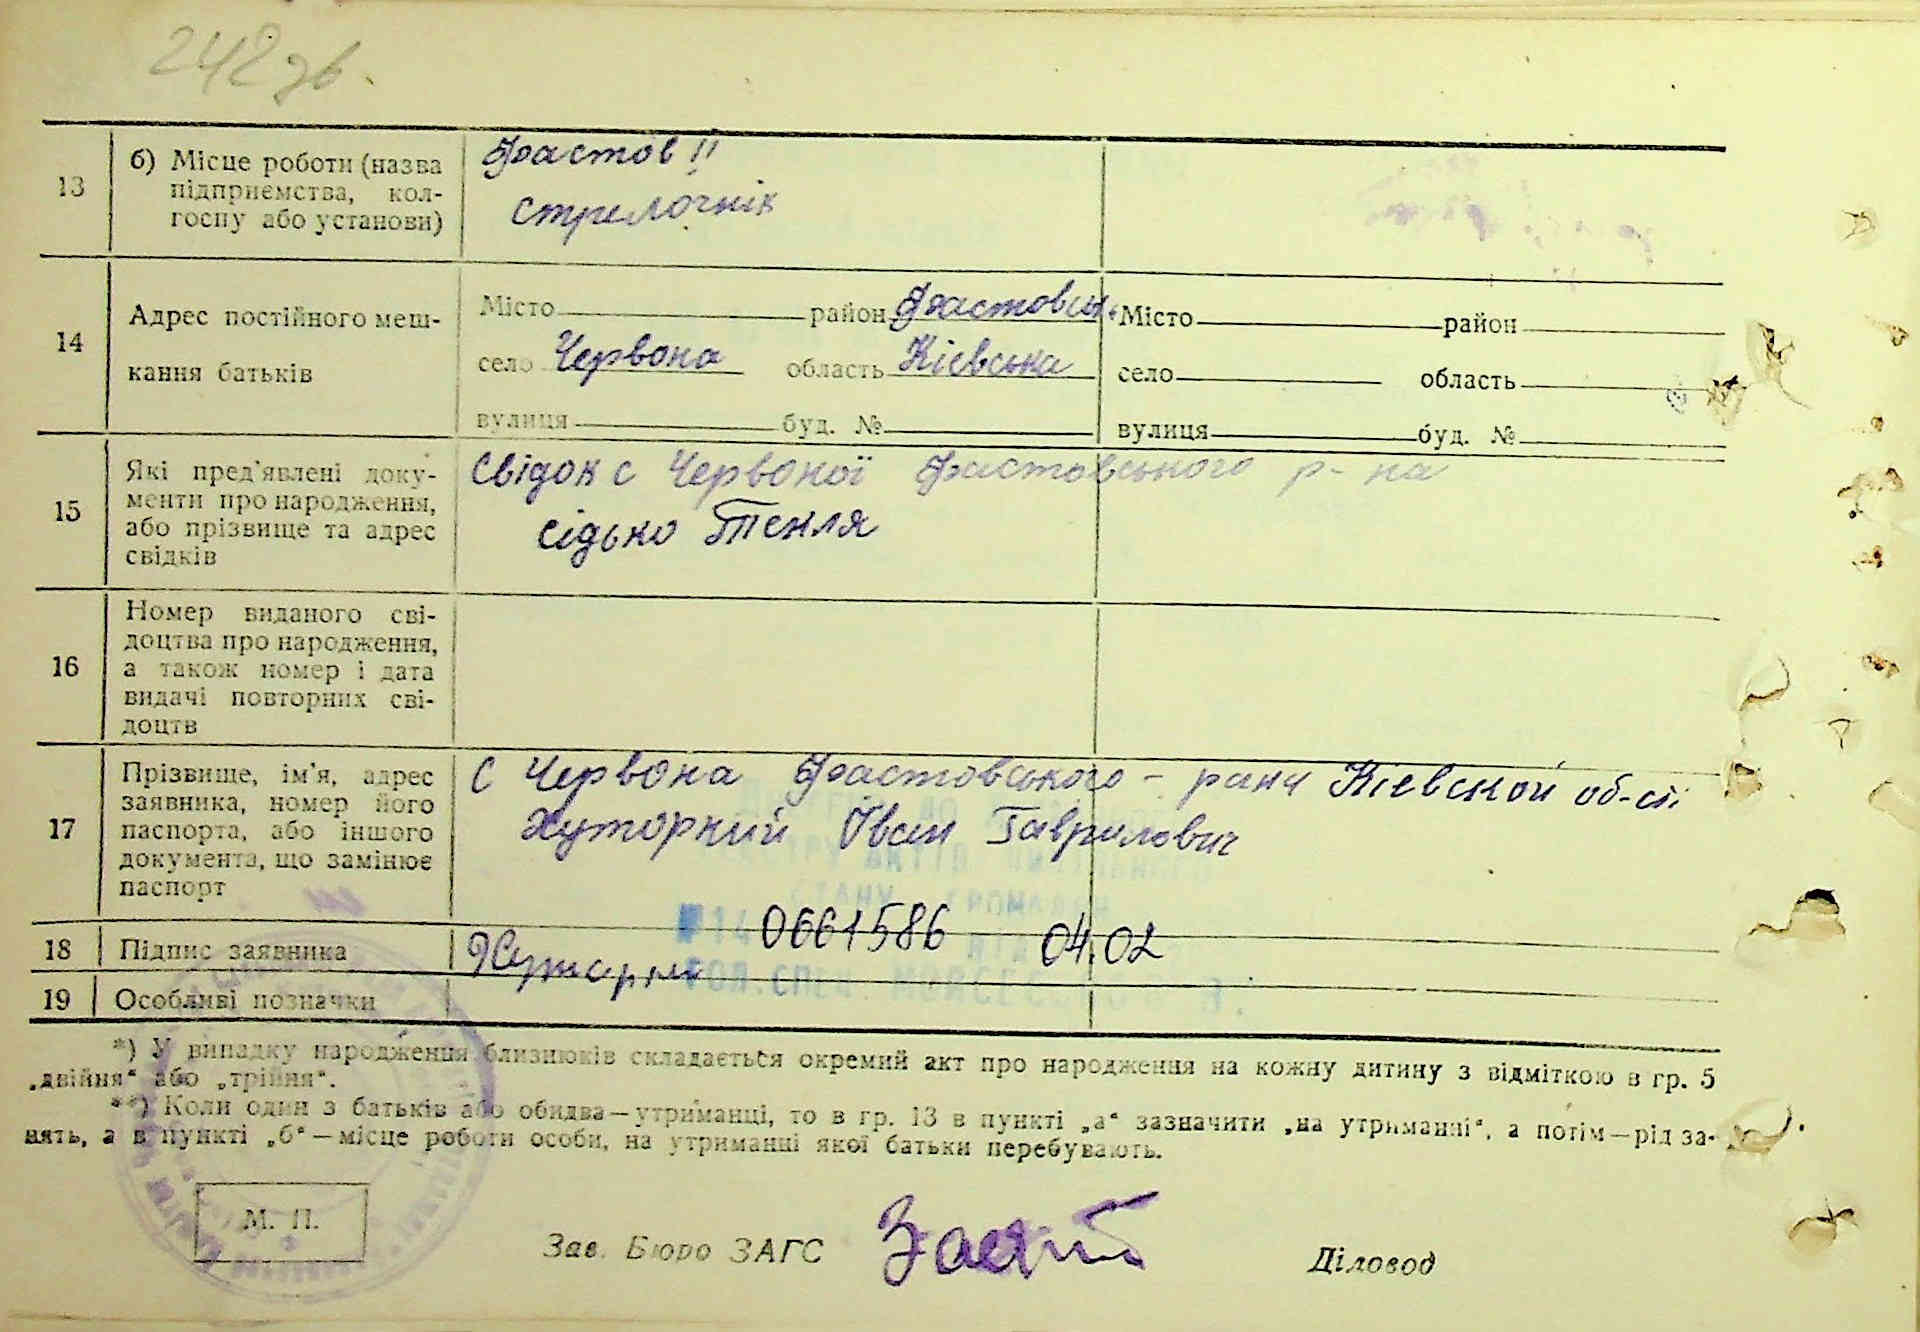 242 зв.
13
б) Місце роботи (назва
підприємства, кол-
госпу або установи)
Фастов II
стрелочнік
14
Адрес постійного меш-
кання батьків
Місто район Фастовськ.
село Червона область Кієвська
вулиця буд. №
Місто район
село область
вулиця буд. №
15
Які пред'явлені доку-
менти про народження,
або прізвище та адрес
свідків
Свідок с Червоної Фастовського р-на
Сідько Текля
16
Номер виданого сві-
доцтва про народження,
а також номер і дата
видачі повторних сві-
доцтв
17
Прізвище, ім'я, адрес
заявника, номер його
паспорта, або іншого
документа, що замінює
паспорт
С Червона Фастовського-рана Кіевской об-сті
Хуторний Іван Гаврилович
АКТІВ
СТАНУ ГРОМАДЯН
18 Підпис заявника
№14 0661586 04.02
ГОЛ.СПЕЦ.
19 Особливі позначки
*) У випадку народження близнюків складається окремий акт про народження на кожну дитину з відміткою в гр. 5
„двійня“ або „трійня“.
**) Коли один з батьків або обидва—утриманці, то в гр. 13 в пункті „а“ зазначити „на утриманні“, а потім—рід за-
нять, а в пункті „б“—місце роботи особи, на утриманні якої батьки перебувають.
М. П.
Зав. Бюро ЗАГС
Діловод